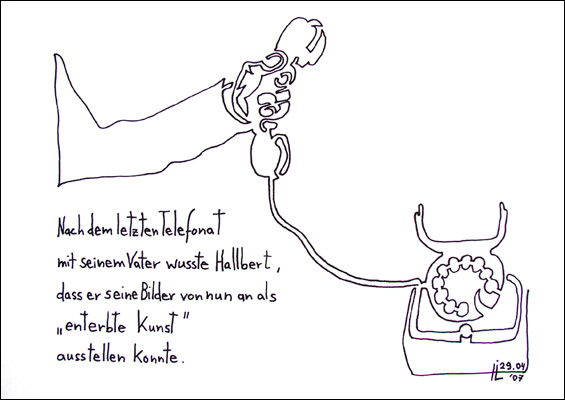 Nach dem letzten Telefonat
mit seinem Vater wusste Hallbert,
dass er seine Bilder von nun an als
„enterbte Kunst"
ausstellen konnte.
29.04
'07